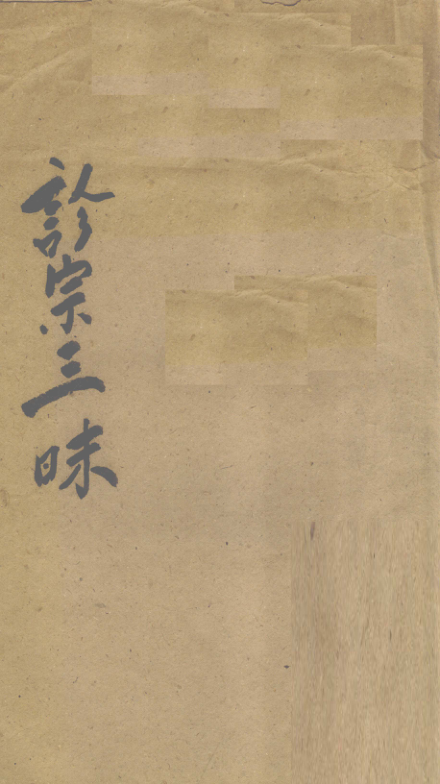 診宗三昧